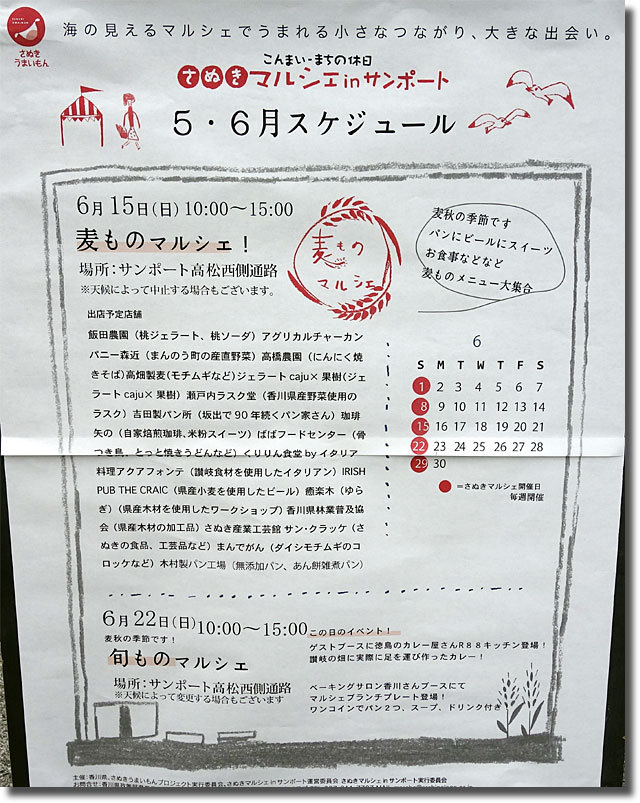 さぬき
うまいもん
海の見えるマルシェでうまれる小さなつながり、大きな出会い。
こんまい-まちの休日
さぬきマルシェinサンポート
5・6月スケジュール
6月15日(日) 10:00〜15:00
麦ものマルシェ！
場所：サンポート高松西側通路
※天候によって中止する場合もございます。
麦もの
マルシェ
麦秋の季節です
パンにビールにスイーツ
お食事などなど
麦ものメニュー大集合
出店予定店舗
飯田農園（桃ジェラート、桃ソーダ）アグリカルチャーカン
パニー森近（まんのう町の産直野菜）高橋農園（にんにく焼
きそば)高畑製麦(モチムギなど)ジェラートcaju×果樹(ジェ
ラートcaju×果樹）瀬戸内ラスク堂（香川県産野菜使用の
ラスク）吉田製パン所（坂出で90年続くパン家さん）珈琲
矢の（自家焙煎珈琲、米粉スイーツ）ばばフードセンター（骨
つき鳥、とっと焼きうどんなど）くりりん食堂byイタリア
料理アクアフォンテ（讃岐食材を使用したイタリアン）IRISH
PUB THE CRAIC（県産小麦を使用したビール）癒楽木（ゆら
ぎ）（県産木材を使用したワークショップ）香川県林業普及協
会（県産木材の加工品）さぬき産業工芸館 サン・クラッケ（さ
ぬきの食品、工芸品など）まんでがん（ダイシモチムギのコ
ロッケなど）木村製パン工場（無添加パン、あん餅雑煮パン）
6
S M T W T F S
1 2 3 4 5 6 7
8 9 10 11 12 13 14
15 16 17 18 19 20 21
22 23 24 25 26 27 28
29 30
＝さぬきマルシェ開催日
毎週開催
6月22日(日) 10:00〜15:00
麦秋の季節です！
旬ものマルシェ
場所：サンポート高松西側通路
※天候によって変更する場合もございます
この日のイベント！
ゲストブースに徳島のカレー屋さんR88キッチン登場！
讃岐の畑に実際に足を運び作ったカレー！
ベーキングサロン香川さんブースにて
マルシェブランチプレート登場！
ワンコインでパン2つ、スープ、ドリンク付き
主催：香川県、さぬきうまいもんプロジェクト実行委員会、さぬきマルシェinサンポート運営委員会 さぬきマルシェinサンポート実行委員会